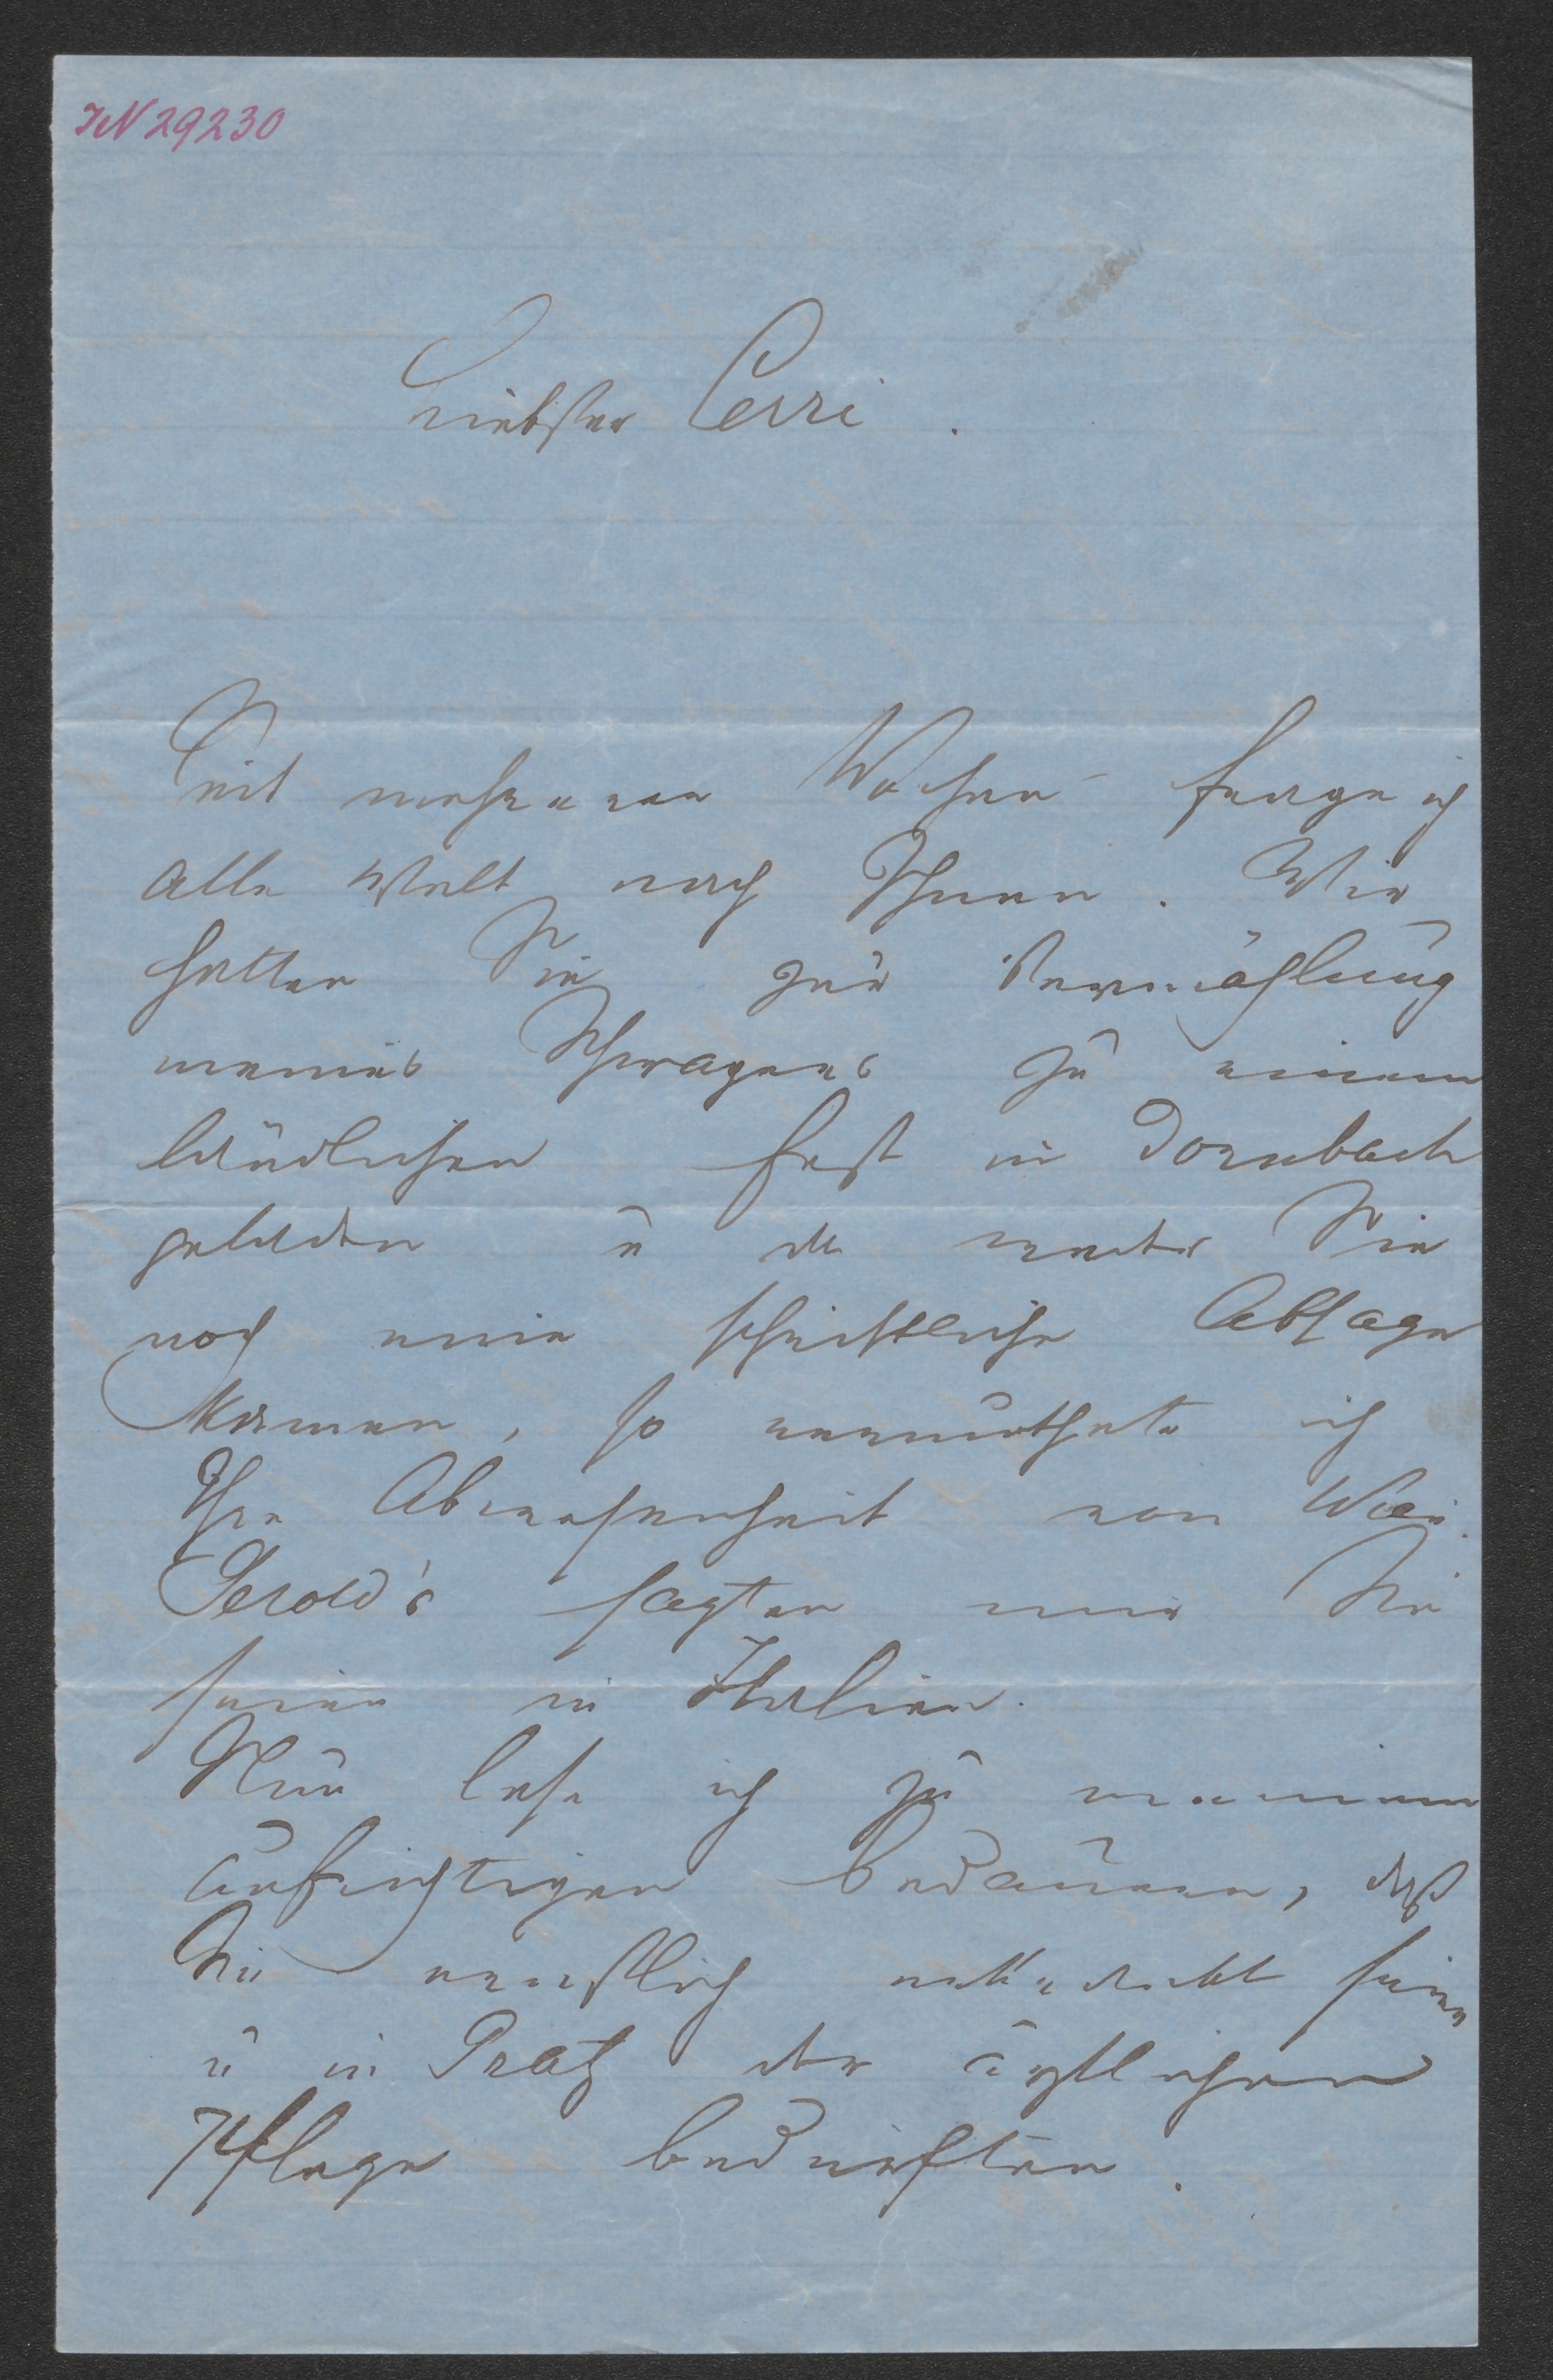 IN 29230
Liebster Cerri.
Seit mehreren Wochen frage ich
alle Welt nach Ihnen. Wir
hatten Sie zur Vermählung
meines Schwagers zu einem
ländlichen Fest in Dornbach
geladen u da weder Sie
noch eine schriftliche Absage
kamen, so vermuthete ich
Ihre Abwesenheit von Wien.
Gerold's sagten mir Sie
seien in Italien.
Nun lese ich zu meinem
aufrichtigen Bedauern, daß
Sie ernstlich erkrankt seien
u in Gratz der ärztlichen
Pflege bedürften.